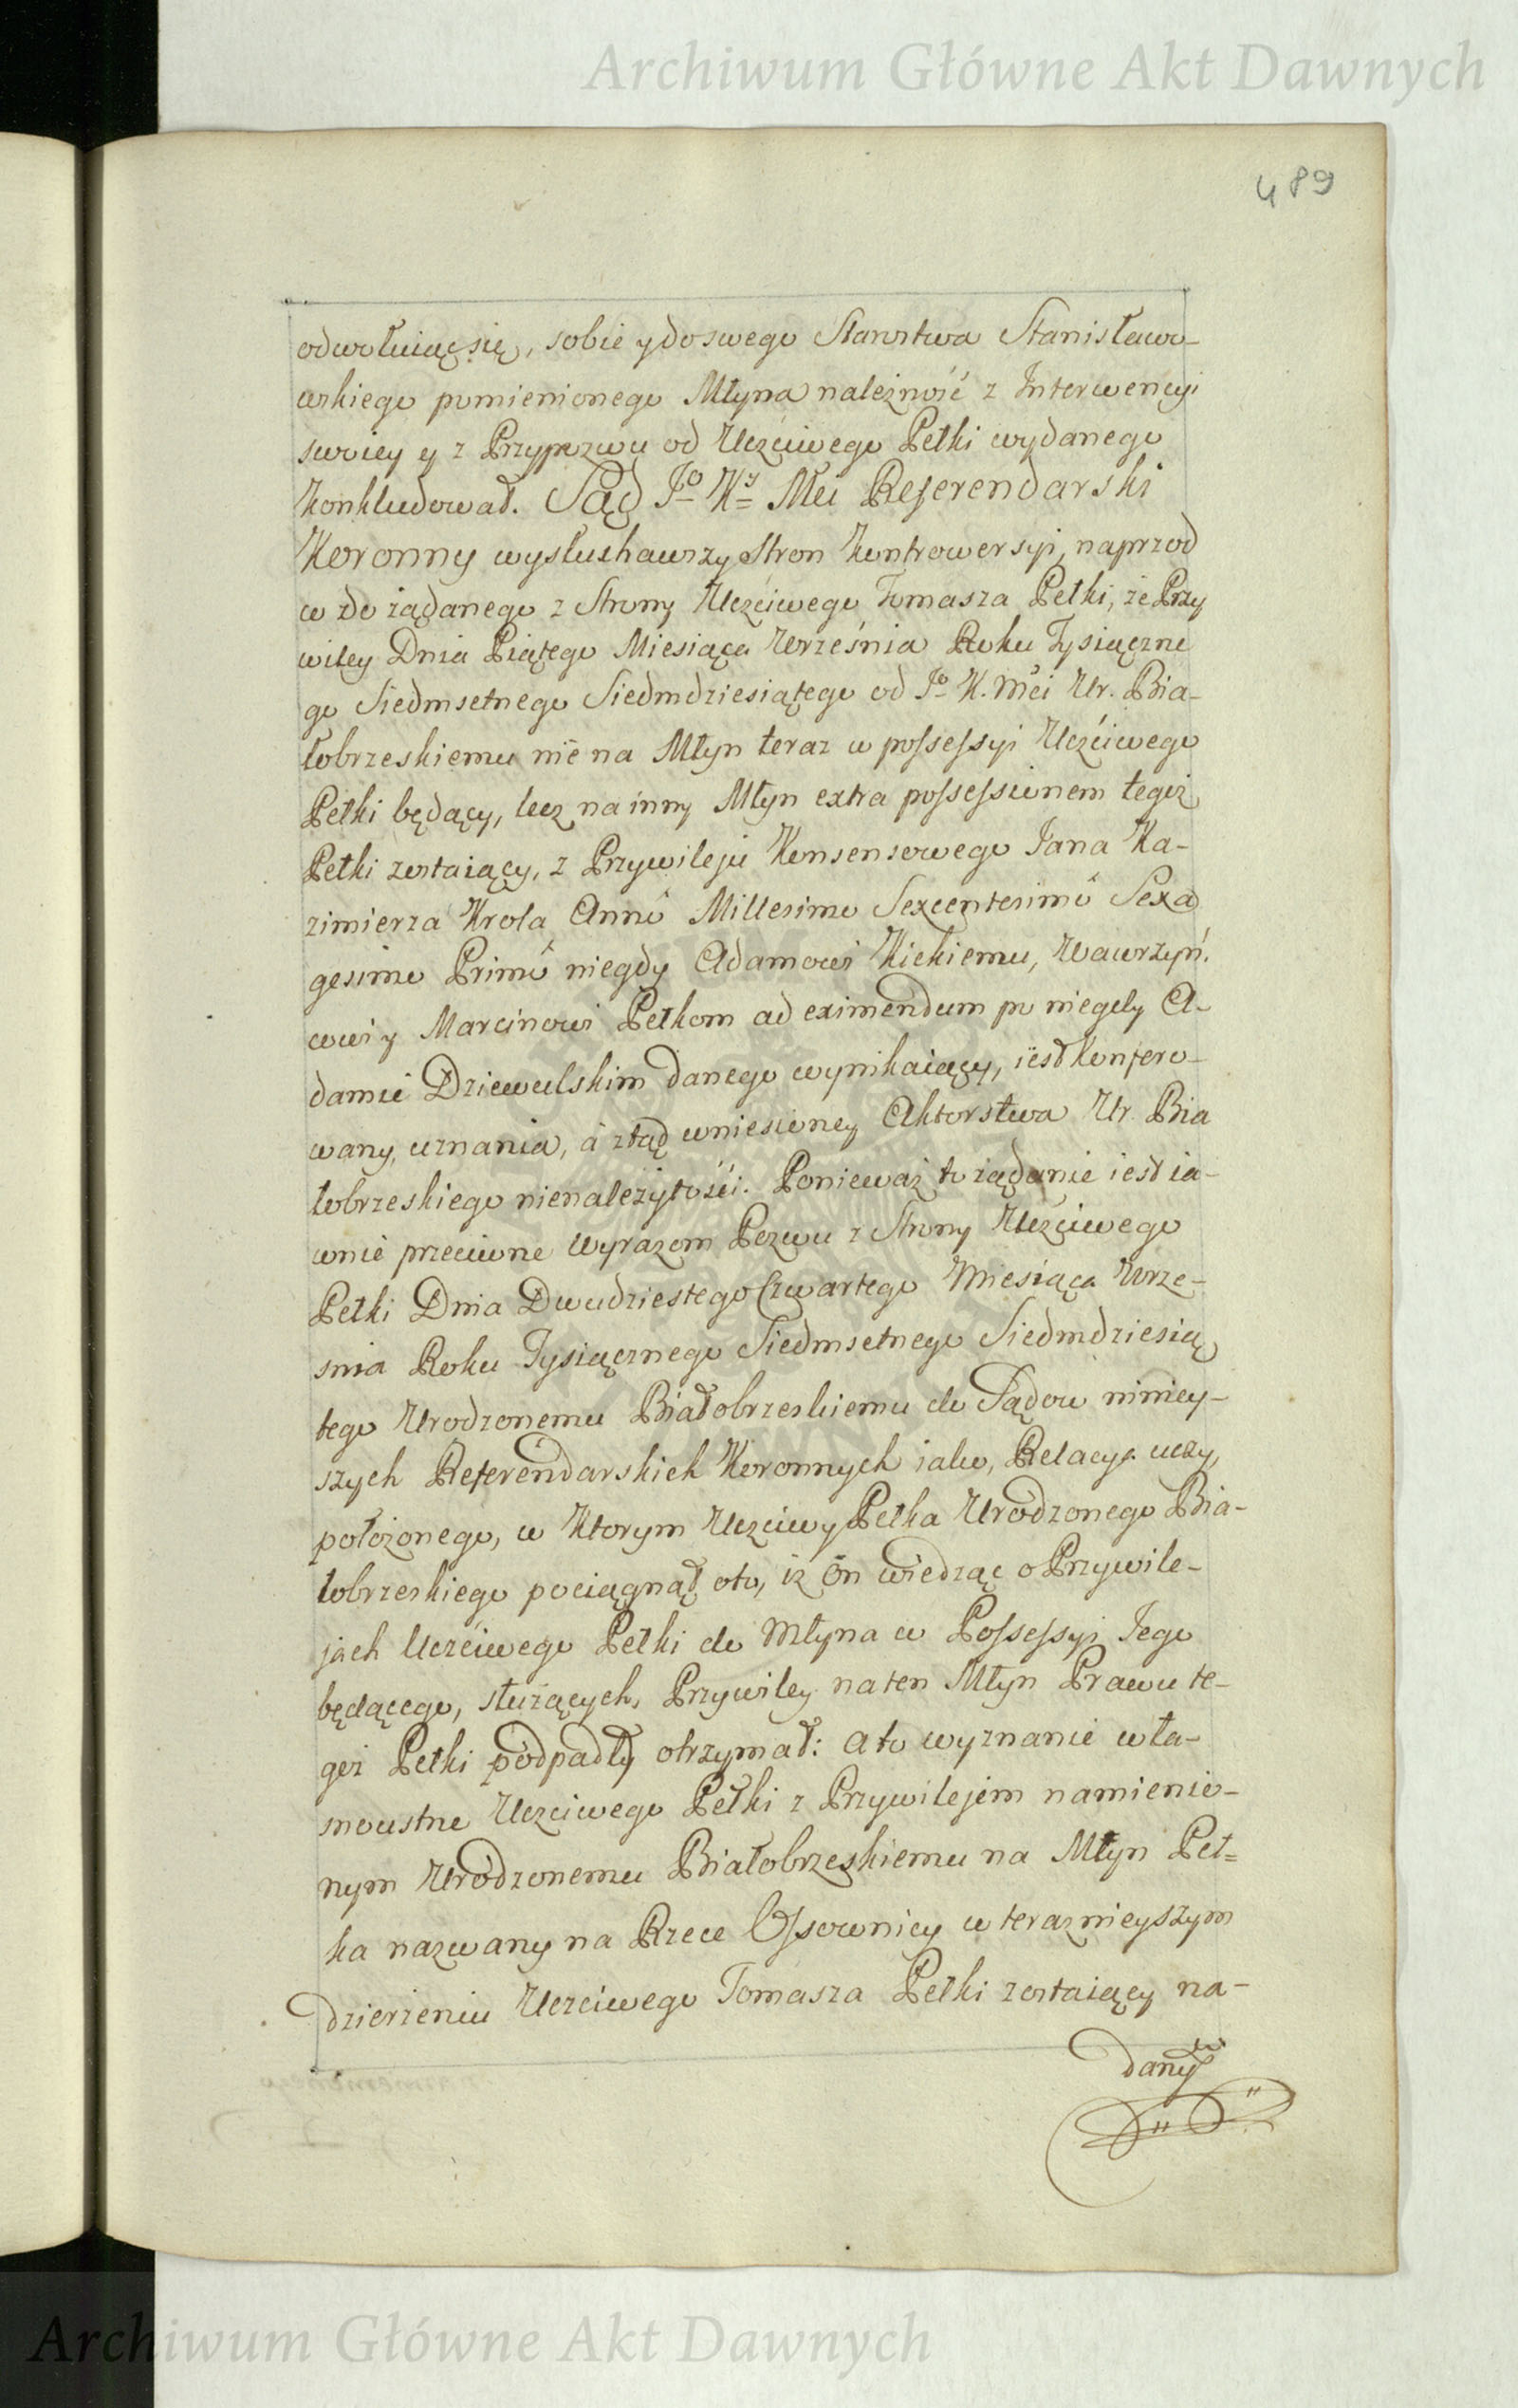 Archiwum Główne Akt Dawnych
489
odwołuiąc się, sobie y do swego Starostwa Stanisławo-
wskiego pomienionego Młyna należność z Interwencyi
swoiey y z Przypozwu od Uczciwego Pełki wydanego
konkludował. Sąd Jo Ky Mci Referendarski
Koronny wysłuchawszy Stron Kontrowersyi, naprzod
w zdo żądanego z Strony Uczciwego Tomasza Pełki, że Przy
wiley Dnia Piątego Miesiąca Września Roku Tysiączne
go Siedmsetnego Siedmdziesiątego od Jo K. Mci Ur. Bia-
łobrzeskiemu nie na Młyn teraz w possessyi Uczciwego
Pełki będący, lecz na inny Młyn extra possessionem tegoż
Pełki zostaiący, z Przywileju Konsensowego Jana Ka-
zimierza Krola Anno Millesimo Sexcentesimo Sexa
gesimo Primo niegdy Adamowi Kickiemu, Wawrzyń.
cowi y Marcinowi Pełkom ad eximendum po niegdy A-
damie Dziewulskim danego wynikaiący, iest konfero-
wany, uznania, á ztąd wniesioney Aktorstwa Ur. Bia
łobrzeskiego nienależytości. Ponieważ to żądanie iest ia-
wnie przeciwne wyrazom Pozwu z Strony Uczciwego
Pełki Dnia Dwudziestego Czwartego Miesiąca Wrze-
snia Roku Tysiącznego Siedmsetnego Siedmdziesią
tego Urodzonemu Białobrzeskiemu do Sądow niniey-
szych Referendarskich Koronnych iako, Relacya uczy,
położonego, w ktorym Uczciwy Pełka Urodzonego Bia-
łobrzeskiego pociągnął oto, iż On wiedząc o Przywile-
jach Uczciwego Pełki do Młyna w Possessyi Jego
będącego, służących, Przywiley na ten Młyn Prawu te-
goż Pełki podpadły otrzymał: a to wyznanie wła-
snoustne Uczciwego Pełki z Przywilejem namienio-
nym Urodzonemu Białobrzeskiemu na Młyn Peł=
ka nazwany na Rzece Ossownicy w teraznieyszym
dzierżeniu Uczciwego Tomasza Pełki zostaiący na-
dany
Archiwum Główne Akt Dawnych